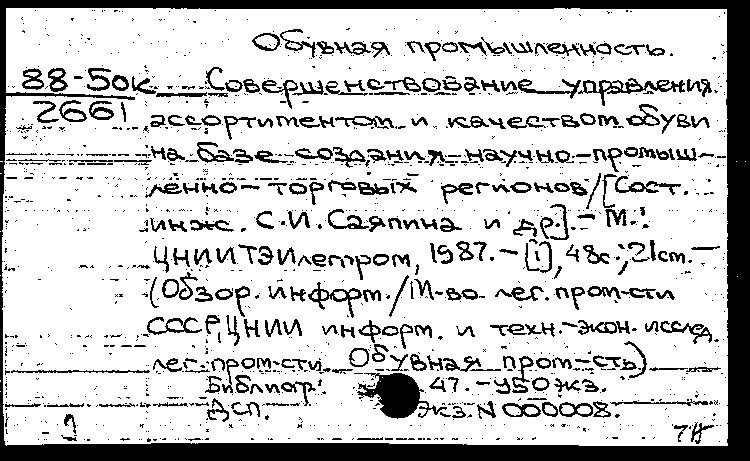 Обувная промышленность.
88-50к Совершенствование управления
2661 ассортиментом и качеством обуви
на базе создания научно-промыш-
ленно-торговых регионов/[Сост.
инж. С.И.Саяпина и др.].- М.:
ЦНИИТЭИлегпром, 1987.- [1], 48с.; 21см.-
(Обзор. информ./М-во лег. пром-сти
СССР, ЦНИИ информ. и техн.-экон. исслед.
лег. пром-сти. Обувная пром-сть)
Библиогр.: 47.- 450экз.
ДСП. Экз. N 000008.